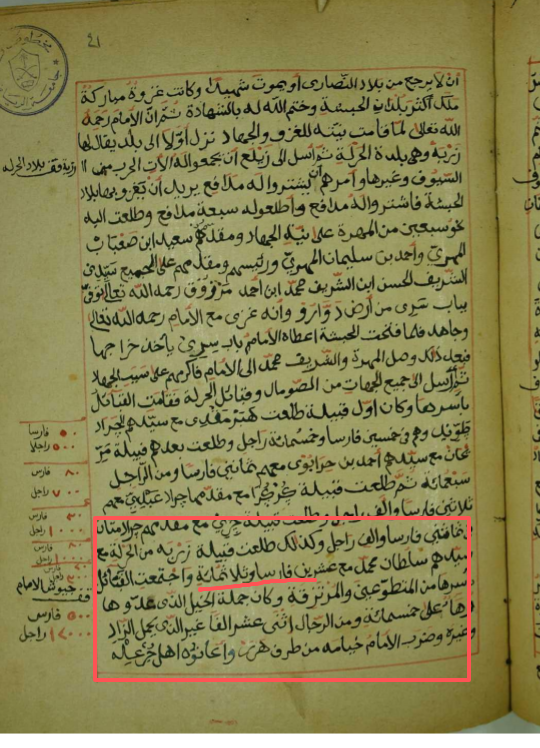 ٤١
ان لا يرجع من بلاد النصارى او يموت شهيدا وكانت غزوة مباركة
ملك اكثر بلدان الحبشة وختم الله له بالشهادة ثم ان الامام رحمه
الله تعالى لما قامت نيته للغزو والجهاد نزل اولا الى بلد يقال لها
زربة وهي بلدة الحرلة ثم ارسل الى زيلع ان يجمعوا له آلات الحرب من
السيوف وغيرها وامرهم ان يشتروا له مدافع يريد ان يغزو بها بلاد
الحبشة فاشتروا له مدافع واطلعوا له سبعة مدافع وطلعت اليه
نحو سبعين من المهرة على نية الجهاد ومقدمهم سعيد ابن صعبان
المهري واحمد بن سليمان المهري ورئيسهم ومقدمهم على الجميع سيدي
الشريف الحسن ابن الشريف محمد ابن احمد مرفوق رحمه الله تعالى توفى
بباب سرى من ارض دوارو وانه غزى مع الامام رحمه الله تعالى
وجاهد فلما فتحت الحبشة اعطاه الامام باب سرى ياخذ خراجها
فبعد ذلك وصل المهرة والشريف محمد الى الامام فاكرمهم على سبب الجهاد
ثم ارسل الى جميع الجهات من الصومال وقبائل الحرلة فقامت القبائل
باسرها وكان اول قبيلة طلعت هبر مقدي مع سيدهم الجراد
وهم في خمسين فارسا وخمسمائة راجل وطلعت بعدهم قبيلة
مع سيدهم احمد بن معهم ثمانين فارسا ومن الراجل
سبعمائة ثم طلعت قبيلة مع مقدمها جراد عبدلي معهم
ثلاثين فارسا والف راجل وطلعت قبيلة جري مع مقدمهم جراد متان
في ثمانين فارسا والف راجل وكذلك طلعت قبيلة زربه من الحرلة مع
سيدهم سلطان محمد مع عشرين فارسا وثلاثمائة واجتمعت القبائل
باسرها من المتطوعين والمرتزقة وكان جملة الخيل الذي عدوها
على خمسمائة ومن الرجال اثنى عشر الفا غير الذي يحمل الزاد
وغيره وضرب الامام خيامه من طرف هرر واعانوه اهل
زربة قف بلاد الحرله
٥٠ فارسا
٥٠٠ راجلا
٨٠ فارس
٧٠٠ راجل
٣٠ فارس
١٠٠٠ راجل
٨٠ فارس
١٠٠٠ راجل
قف جيوش الامام
٥٠٠ فارس
١٢٠٠٠ راجل